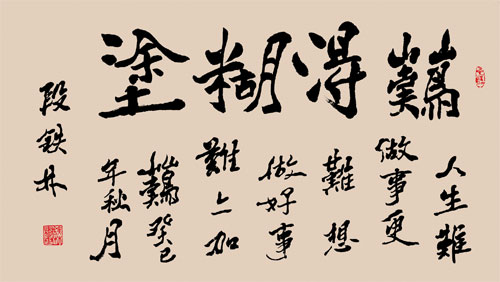 難得糊塗
人生難
做事更
難想
做好事
難上加
難癸巳
年秋月
段鉄林